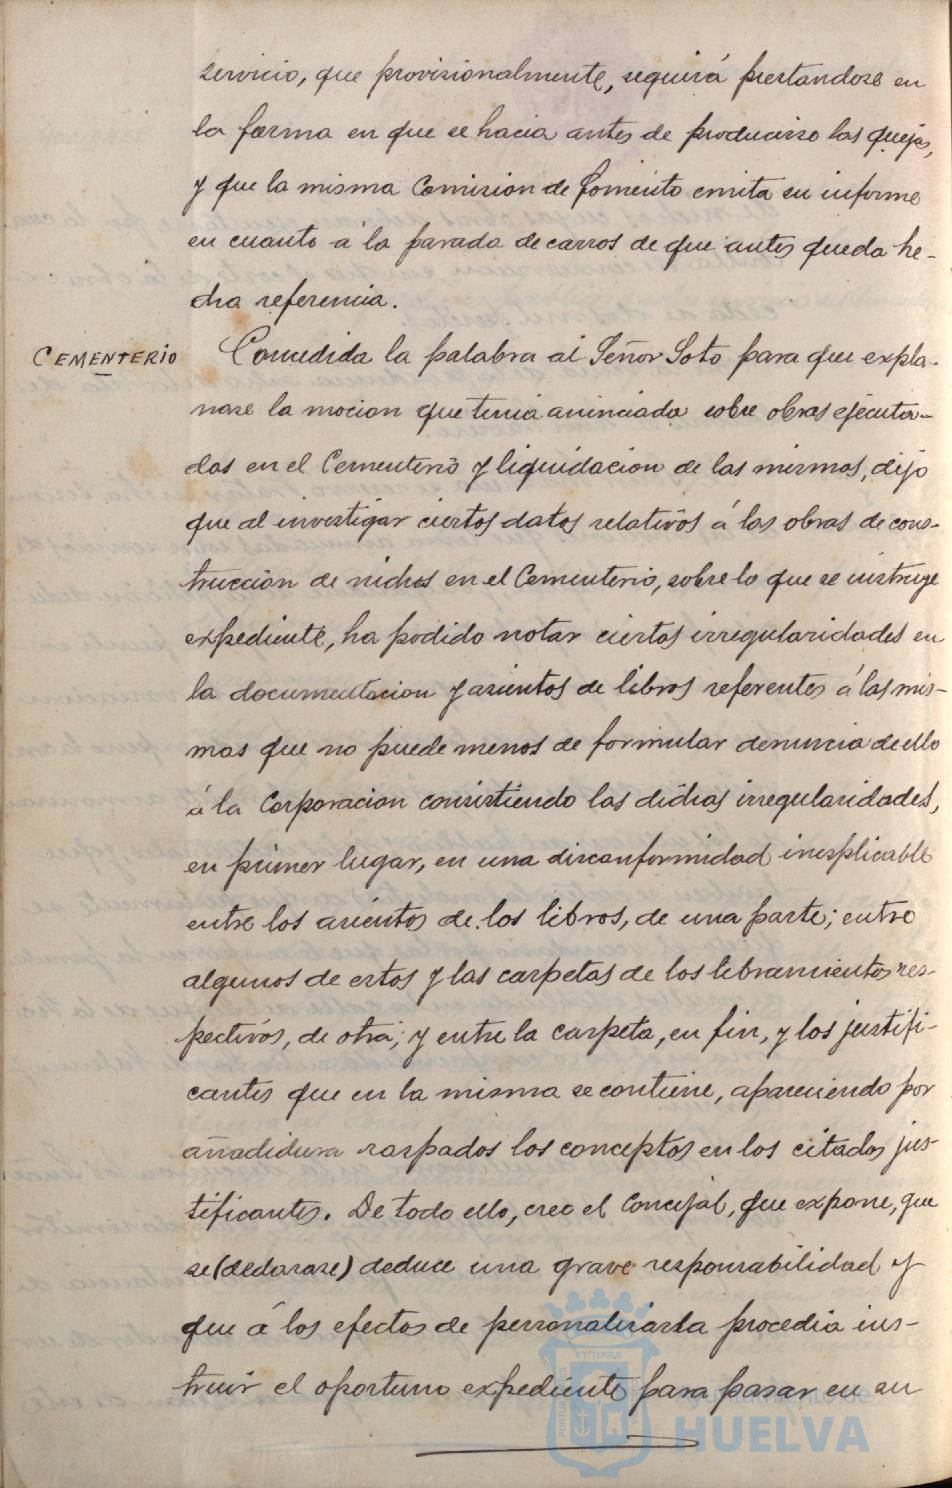 servicio, que provisionalmente, seguirá prestandose en
la forma en que se hacia antes de producirse las quejas,
y que la misma Comision de Fomento emita su informe
en cuanto á la parada de carros de que antes queda he-
cha referencia.
CEMENTERIO
Concedida la palabra al Señor Soto para que expla-
nase la mocion que tenia anunciada sobre obras ejecuta-
das en el Cementerio y liquidacion de las mismas, dijo
que al investigar ciertos datos relativos á las obras de cons-
truccion de nichos en el Cementerio, sobre lo que se instruye
expediente, ha podido notar ciertas irregularidades en
la documentacion y asientos de libros referentes á las mis-
mas que no puede menos de formular denuncia de ello
á la Corporacion consistiendo las dichas irregularidades,
en primer lugar, en una disconformidad inesplicable
entre los asientos de los libros, de una parte; entre
algunos de estos y las carpetas de los libramientos res-
pectivos, de otra; y entre la carpeta, en fin, y los justifi-
cantes que en la misma se contiene, apareciendo por
añadidura raspados los conceptos en los citados jus-
tificantes. De todo ello, cree el Concejal, que expone, que
se (declarase) deduce una grave responsabilidad y
que á los efectos de personalizarla procedia ins-
truir el oportuno expediente para pasar en su
Ayuntamiento de
HUELVA